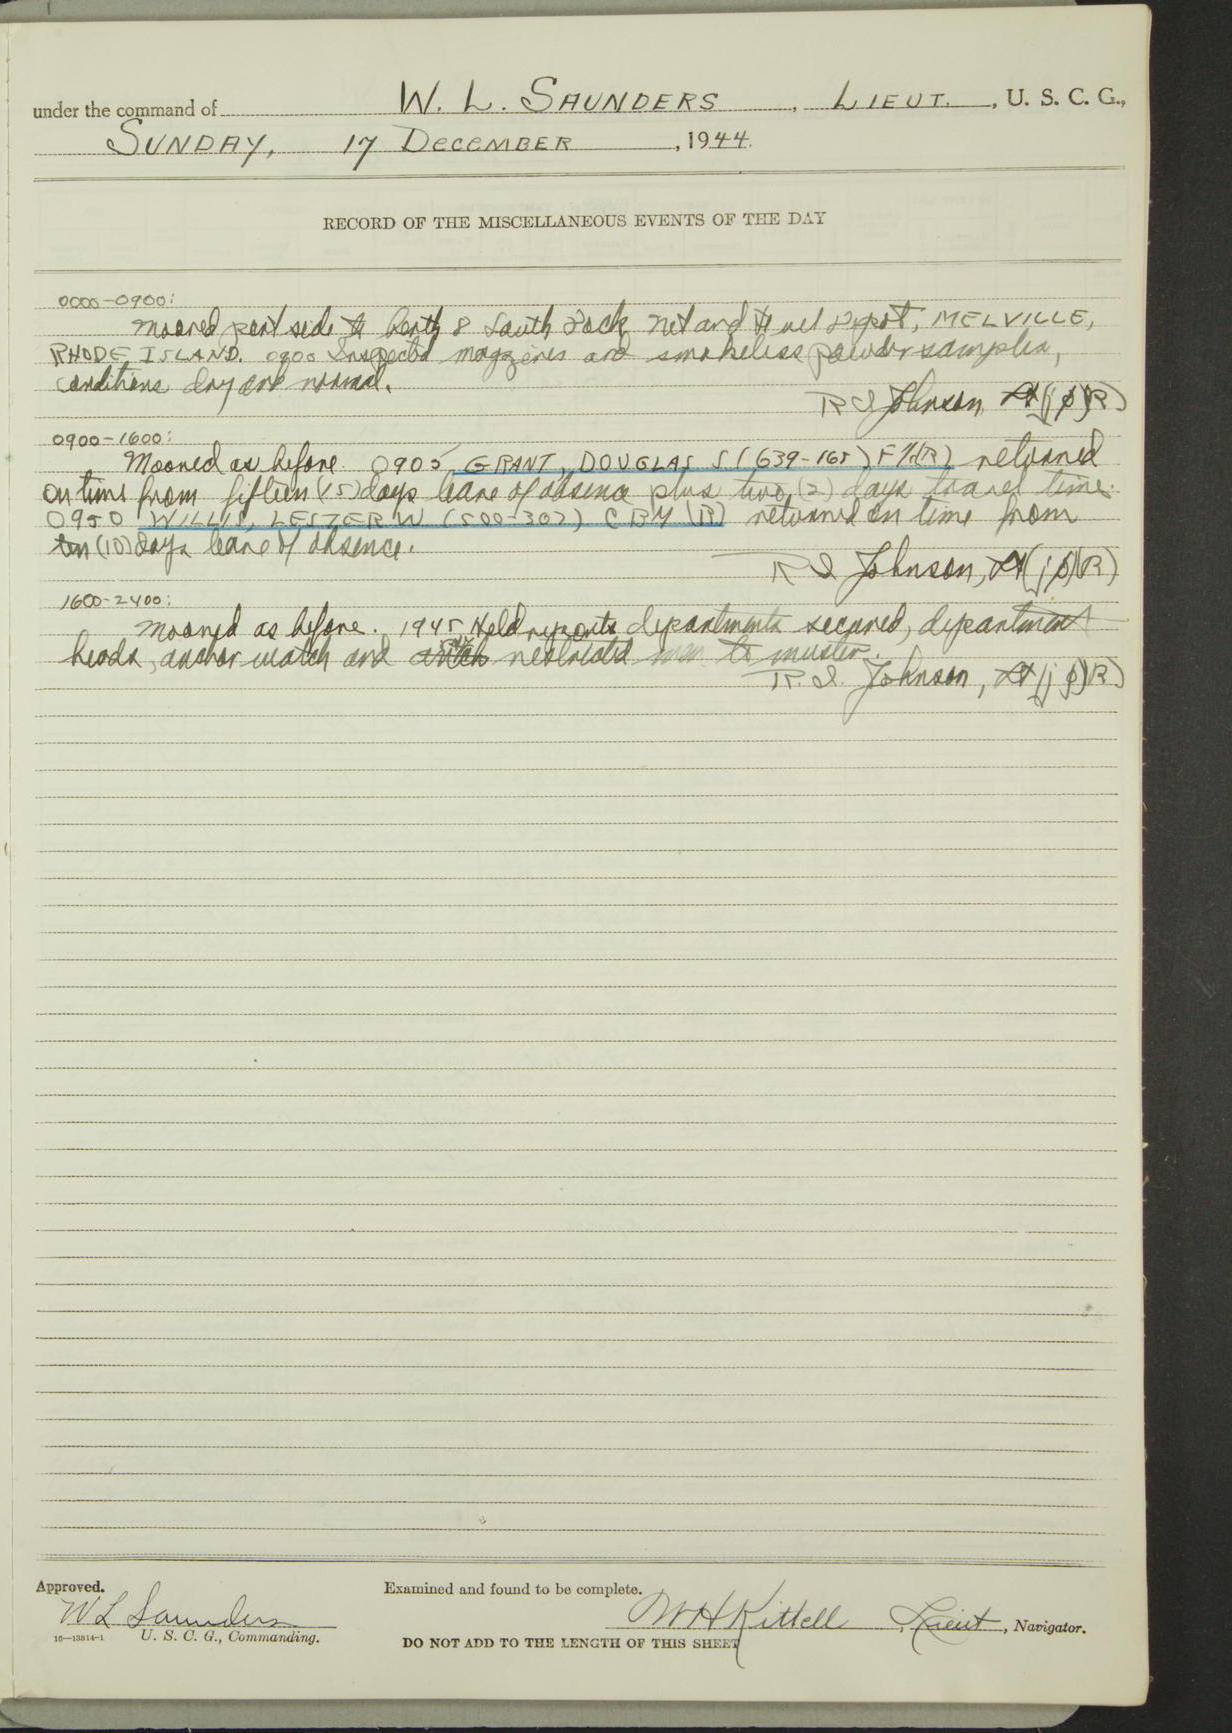 under the command of W. L. SAUNDERS, LIEUT., U. S. C. G.,
SUNDAY, 17 DECEMBER, 1944.
RECORD OF THE MISCELLANEOUS EVENTS OF THE DAY
0000-0900:
Moored port side to berth 8 South Dock, Net and Fuel Depot, MELVILLE,
RHODE ISLAND. 0900 Inspected magazines and smokeless powder samples,
conditions dry and normal.
R I Johnson, Lt (jg)(R)
0900-1600:
Moored as before. 0905 GRANT, DOUGLAS S (639-165) F1/c(R) returned
on time from fifteen (15) days leave of absence plus two (2) days travel time.
0950 WILLIS, LESTER W (500-307) CBM (R) returned on time from
ten (10) days leave of absence.
R I Johnson, Lt (jg)(R)
1600-2400:
Moored as before. 1945 Held reports departments secured, department
heads, anchor watch and restricted men to muster.
R. I. Johnson, Lt (jg)(R)
Approved.
W L Saunders
16—13814-1 U. S. C. G., Commanding.
Examined and found to be complete.
W H Kittell, Lieut, Navigator.
DO NOT ADD TO THE LENGTH OF THIS SHEET